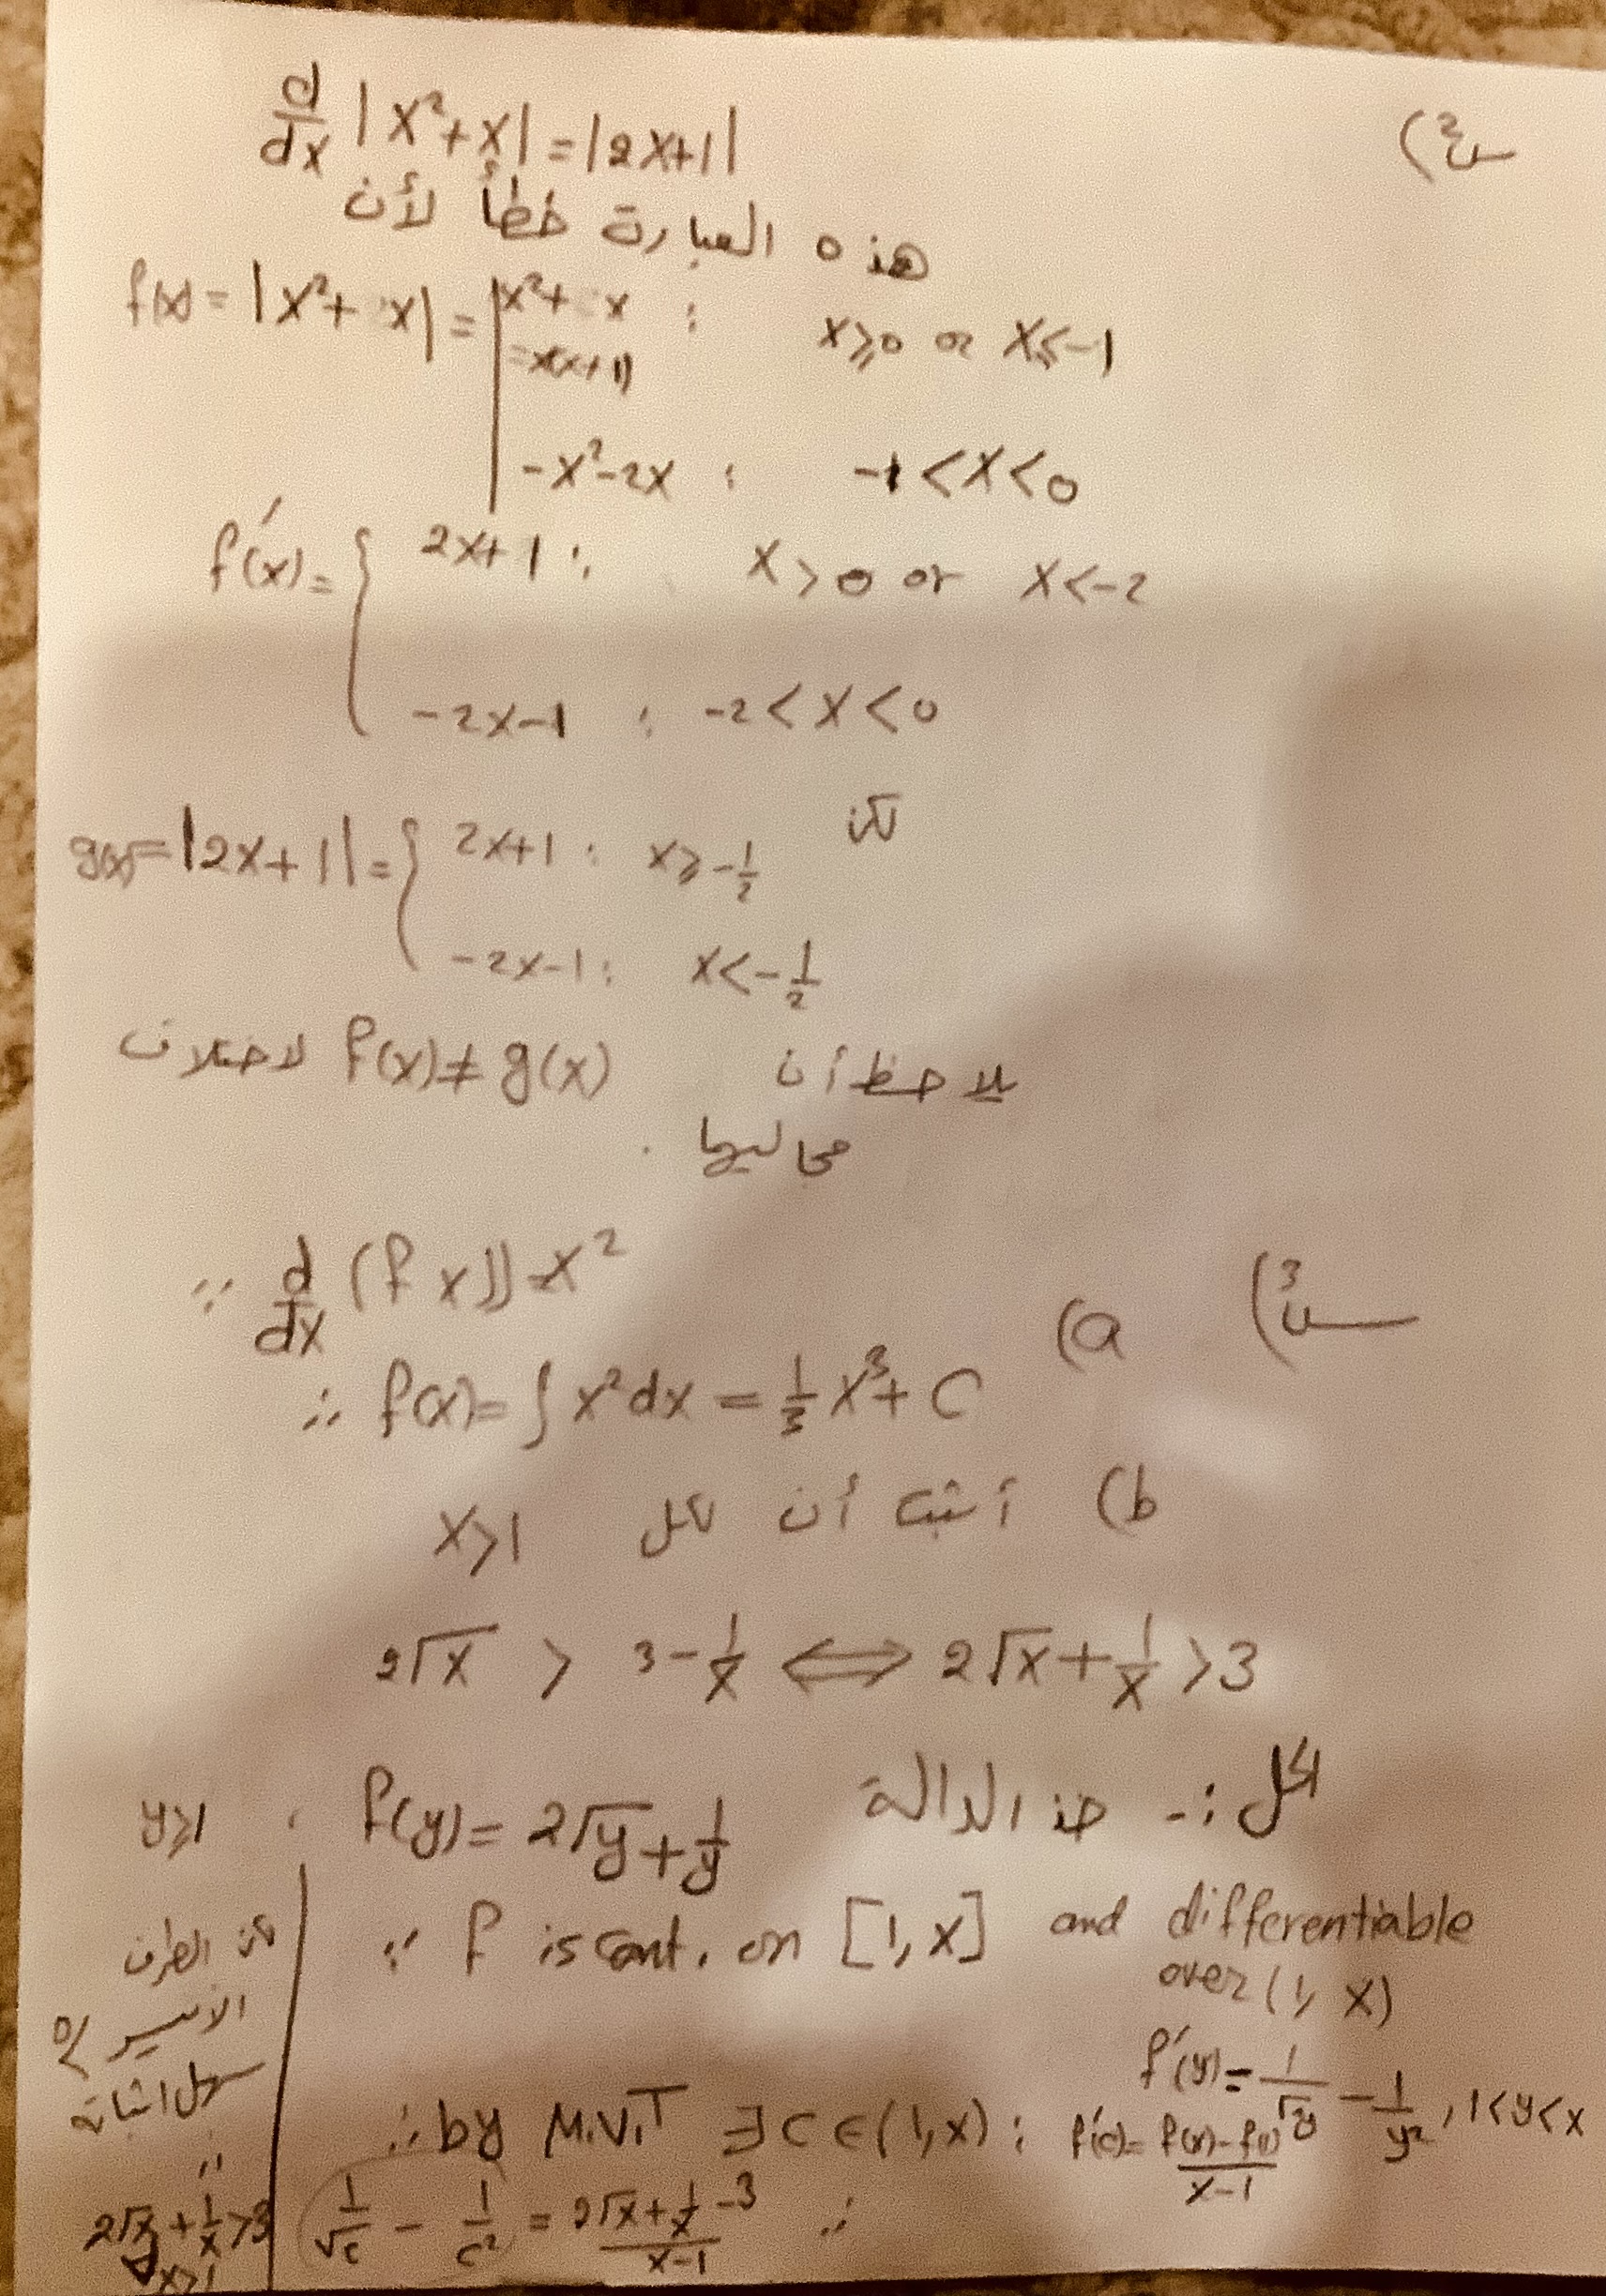 س2)
d/dx |x²+x| = |2x+1|
هذه العبارة خطأ لأن
f(x) = |x²+ x| = | x²+ x : x≥0 or x≤-1
=x(x+1)
-x²-2x : -1<x<0
f'(x) = { 2x+1 : x>0 or x<-2
-2x-1 : -2<x<0
لكن
g(x) = |2x+1| = { 2x+1 : x≥-1/2
-2x-1 : x<-1/2
يلاحظ أن f(x)≠g(x) لاختلاف
مجاليها .
س3) a) ∵ d/dx (f x)) = x²
∴ f(x) = ∫ x² dx = 1/3 x³ + C
b) أثبت أن لكل x>1
2√x > 3 - 1/x ⟺ 2√x + 1/x > 3
الحل :- خذ الدالة f(y) = 2√y + 1/y , y≥1
∵ f is cont. on [1, x] and differentiable
over (1, x)
f'(y) = 1/√y - 1/y² , 1<y<x
∴ by M.V.T ∃ c ∈ (1, x) : f'(c) = f(x)-f(1) / x-1
∴ 1/√c - 1/c² = 2√x + 1/x - 3 / x-1
الطرف
الأيسر >0
∴
2√x + 1/x > 3
x>1